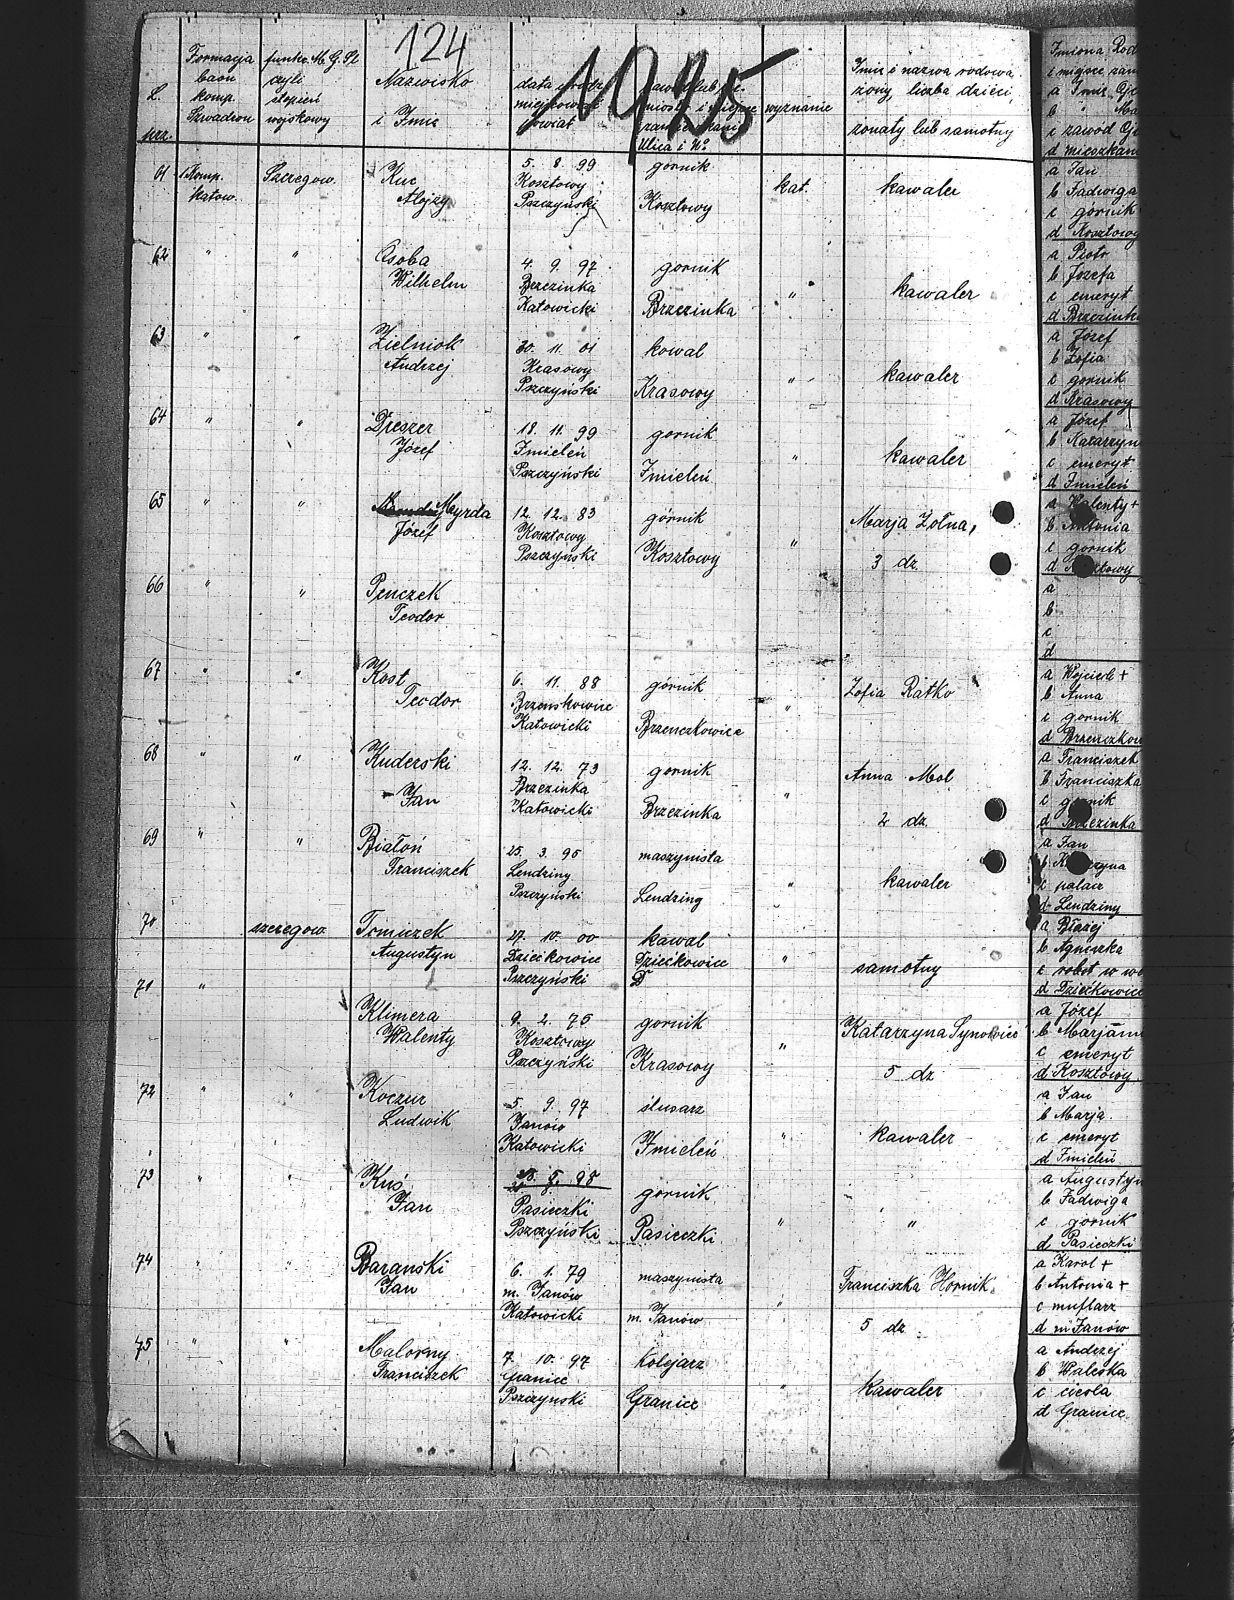 124
1925
L. porz.
Formacja baon komp. Szwadron
funkc. M. G. Śl. czyli stopień wojskowy
Nazwisko i Imię
data urodz. miejscowość powiat
wyznanie
Imię i nazwa rodowa żony, liczba dzieci, żonaty lub samotny
Imiona Rod
i miejsce zam
a Imię Ojc
b " Ma
c zawód Ojc
d mieszkan
61 Komp. Katow. Szeregow. Kuc Alojzy 5. 8. 99 Kosztowy Pszczyński górnik Kosztowy kat. kawaler
a Jan
b Jadwiga
c górnik
d Kosztowy
62 " " Osoba Wilhelm 4. 9. 97 Brzezinka Katowicki gornik Brzezinka " kawaler
a Piotr
b Józefa
c emeryt
d Brzezinka
63 " " Zielniok Andrzej 30. 11. 01 Krasowy Pszczyński kowal Krasowy " kawaler
a Józef
b Zofia
c gornik
d Krasowy
64 " " Dreszer Józef 18. 11. 99 Imieleń Pszczyński gornik Imieleń " kawaler
a Józef
b Katarzyn
c emeryt
d Imieleń
65 " " Meyrda Józef 12. 12. 83 Kosztowy Pszczyński górnik Kosztowy " Marja Żołna, 3 dz.
a Walenty +
b Antonia
c gornik
d Kosztowy
66 " " Penczek Teodor
a
b
c
d
67 " " Kost Teodor 6. 11. 88 Brzenskowice Katowicki górnik Brzenczkowice " Zofia Ratko
a Wojciech +
b Anna
c gornik
d Brzenczkow
68 " " Kuderski Jan 12. 12. 73 Brzezinka Katowicki gornik Brzezinka " Anna Mol 2 dz.
a Franciszek
b Franciszka
c gornik
d Brzezinka
69 " " Białoń Franciszek 25. 3. 95 Lendziny Pszczyński maszynista Lendziny " kawaler
a Jan
b
c palacz
d Lendziny
70 szeregow. Tomiczek Augustyn 27. 10. 00 Dziećkowice Pszczyński kawal Dziećkowice " samotny
a Błażej
b Agnieszka
c robot w wo
d Dziećkowice
71 " Klimera Walenty 9. 2. 75 Kosztowy Pszczyński gornik Krasowy " Katarzyna Synowiec 5 dz
a Józef
b Marjann
c emeryt
d Kosztowy
72 " " Koczur Ludwik 5. 9. 97 Janów Katowicki ślusarz Imieleń " kawaler
a Jan
b Marja.
c emeryt
d Imieleń
73 " " Kuś Jan Pasieczki Pszczyński gornik Pasieczki " "
a Augustyn
b Jadwiga
c gornik
d Pasieczki
74 " " Baranski Jan 6. 1. 79 m. Janów Katowicki maszynista m. Janów " Franciszka Hornik. 5 dz
a Karol +
b Antonia +
c muflarz
d m Janów
75 " " Malorny Franciszek 7. 10. 97 Granice Pszczynski Kolejarz Granice " kawaler
a Andrzej
b Waleska
c cieśla
d Granice.